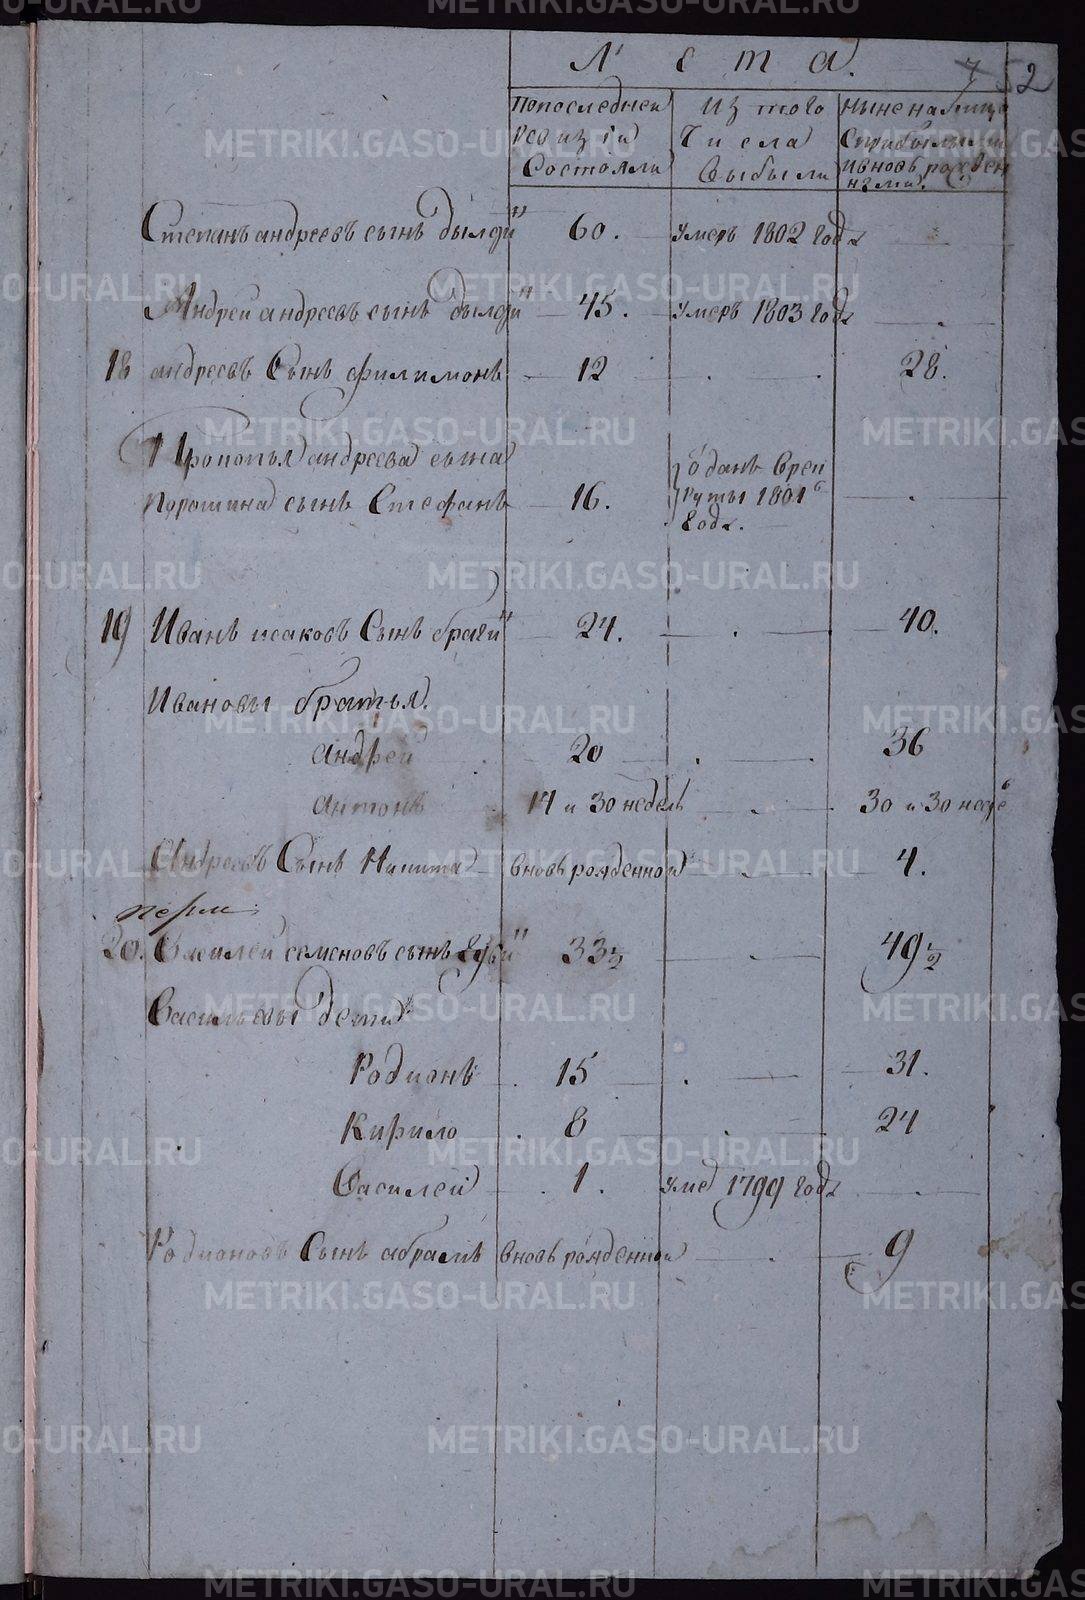 Лета. 7 52
По последней ревизии состояли
Из того числа выбыли
Ныне на лицо с прибылыми и вновь рожденными.
Степанъ андреевъ сынъ 60. умеръ 1802 года
Андрей андреевъ сынъ 45. умеръ 1803 года
18 андреевъ Сынъ филимонъ 12 28.
андреева сына
порошина сынъ Стефанъ 16. отданъ в рекруты 1801 года.
19 Иванъ исаковъ Сынъ 24. 40.
Ивановы братья.
Андрей 20 36
антонъ 14 и 30 недель 30 и 30 неде
Андреевъ Сынъ Никита вновь рожденной 4.
20. Василей семеновъ сынъ 33½ 49½
Васильевы дети
Родионъ 15 31.
Кирило 8 24
Василей 1. умер 1799 года
Родионовъ Сынъ абрамъ вновь рожденной 9
METRIKI.GASO-URAL.RU